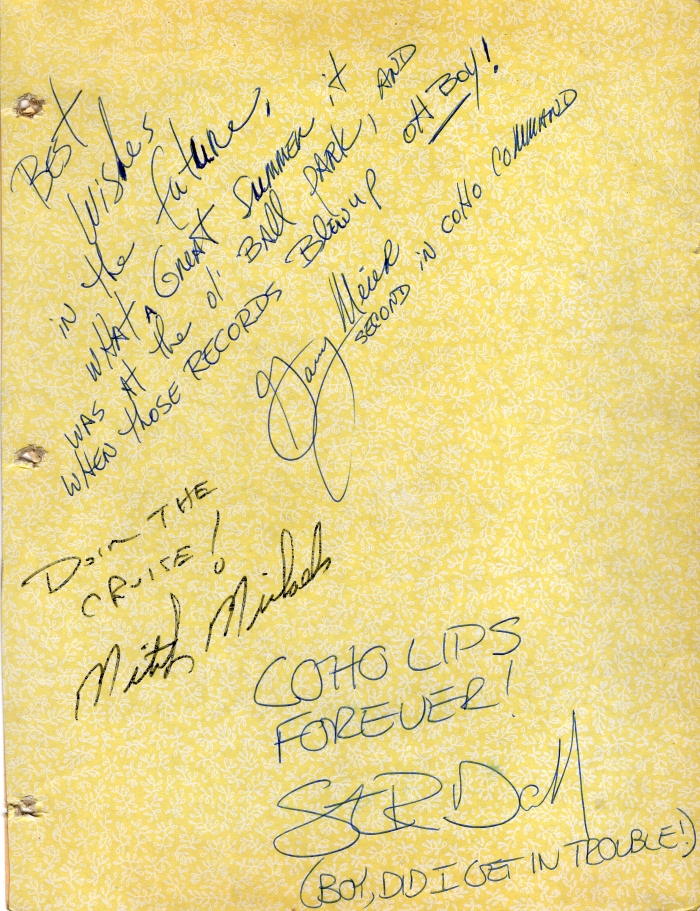 BEST
Wishes
in the future,
WHAT A GREAT SUMMER it
WAS AT the ol' BALL PARK, AND
WHEN those RECORDS Blew up OH BOY!
Garry Meier
SECOND IN COHO COMMAND
Doin THE
CRUISE!
Mitch Michaels
COHO LIPS
FOREVER!
(BOY, DID I GET IN TROUBLE!)